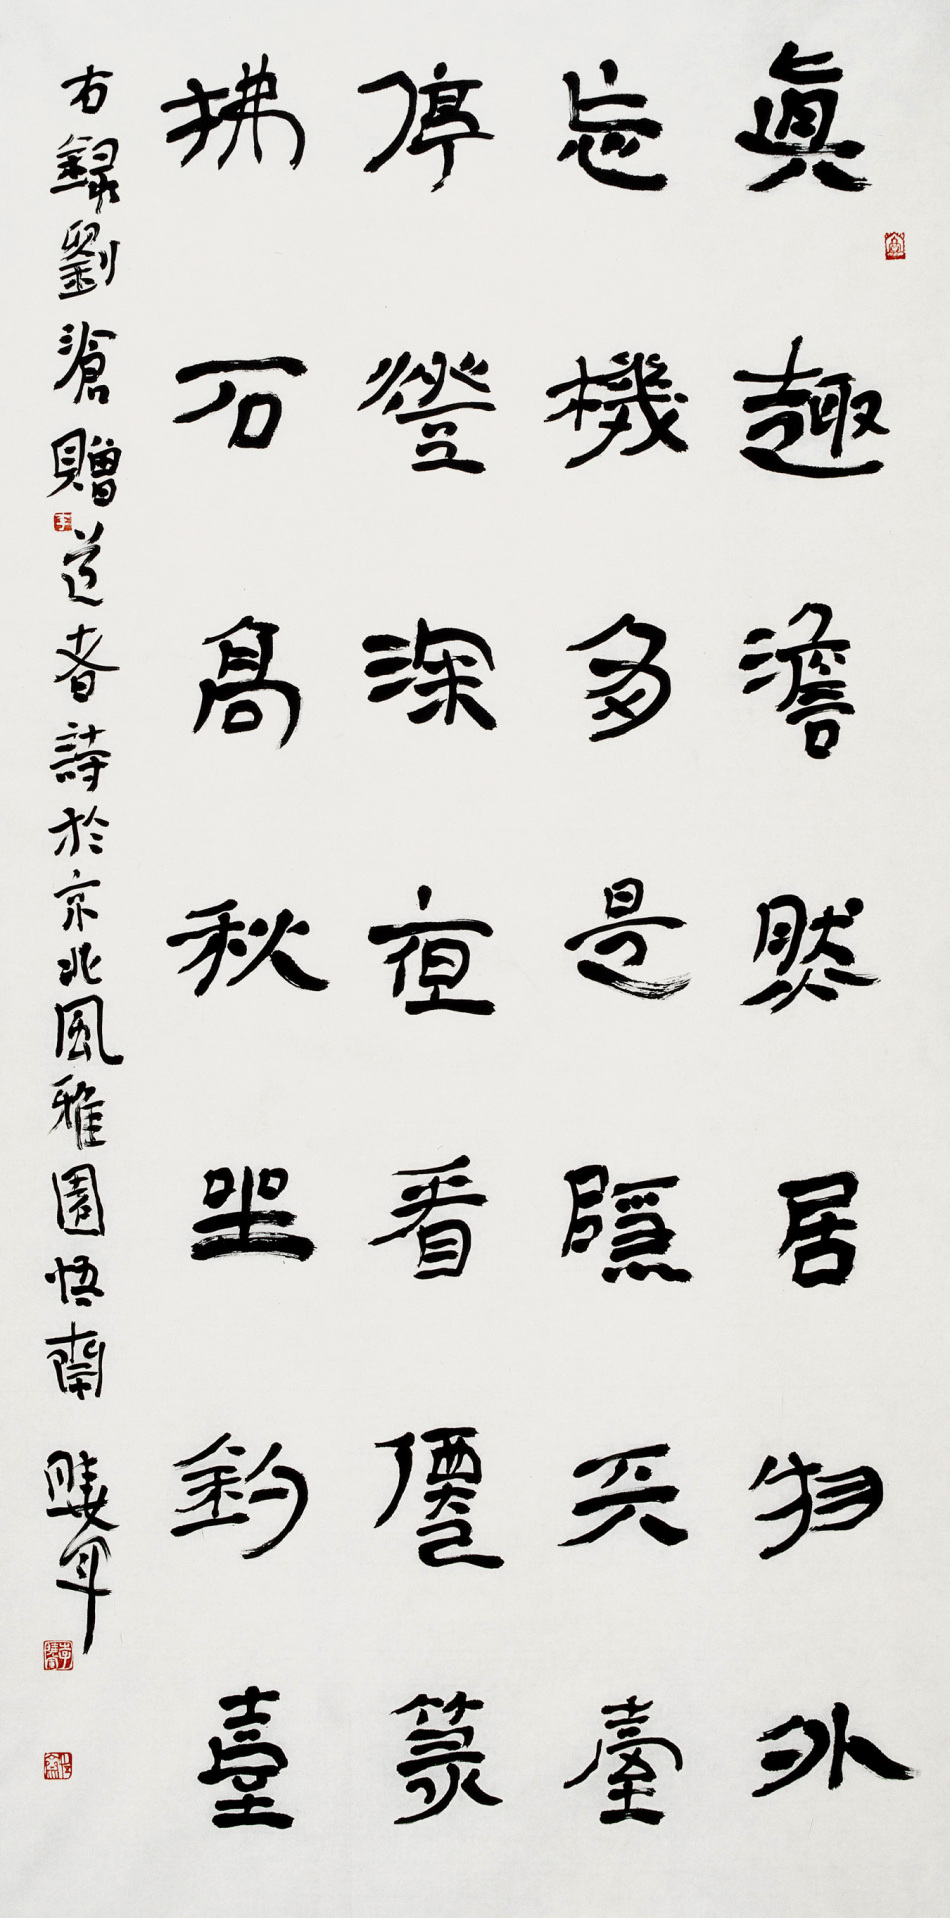 真趣澹然居物外
忘機多是隱天臺
停燈深夜看僊篆
拂石高秋坐釣臺
右錄劉滄贈道者詩於京北風雅園悟蘭